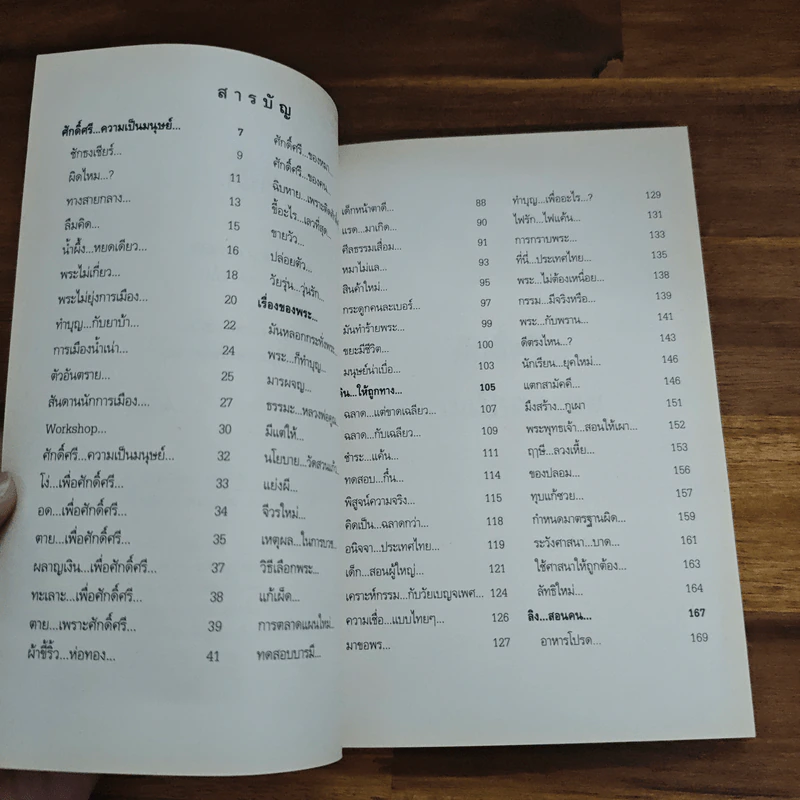 สารบัญ
ศักดิ์ศรี...ความเป็นมนุษย์... 7
ชักธงเชียร์... 9
ผิดไหม...? 11
ทางสายกลาง... 13
ลืมคิด... 15
น้ำผึ้ง...หยดเดียว... 16
พระไม่เกี่ยว... 18
พระไม่ยุ่งการเมือง... 20
ทำบุญ...กับยาบ้า... 22
การเมืองน้ำเน่า... 24
ตัวอันตราย... 25
สันดานนักการเมือง.... 27
Workshop... 30
ศักดิ์ศรี...ความเป็นมนุษย์... 32
โง่...เพื่อศักดิ์ศรี... 33
อด...เพื่อศักดิ์ศรี... 34
ตาย...เพื่อศักดิ์ศรี... 35
ผลาญเงิน...เพื่อศักดิ์ศรี... 37
ทะเลาะ...เพื่อศักดิ์ศรี... 38
ตาย...เพราะศักดิ์ศรี... 39
ผ้าขี้ริ้ว...ห่อทอง... 41
ศักดิ์ศรี...ของหมา...
ศักดิ์ศรี...ของคน...
ฉิบหาย...เพราะ
ชื้อะไร...เลวที่สุด...
ขายวัว...
ปล่อยตัว...
วัยรุ่น...วุ่นรัก...
เรื่องของพระ...
มันหลอกกระทั่งพระ...
พระ...ก็ทำบุญ...
มารผจญ...
ธรรมะ...หลวงพ่อ
มีแต่ให้...
นโยบาย...วัดสวนแก้ว
แย่งผี...
จีวรใหม่...
เหตุผล...ในการบวช...
วิธีเลือกพระ...
แก้เผ็ด...
การตลาดแผนใหม่...
ทดสอบบารมี...
เด็กหน้าตาดี... 88
แรด...มาเกิด... 90
ศีลธรรมเสื่อม... 91
หมาไม่แล... 93
สินค้าใหม่... 95
กระดูกคนละเบอร์... 97
มันทำร้ายพระ... 99
ขยะมีชีวิต... 100
มนุษย์น่าเบื่อ... 103
...ให้ถูกทาง... 105
ฉลาด...แต่ขาดเฉลียว... 107
ฉลาด...กับเฉลียว... 109
ชำระ...แค้น... 111
ทดสอบ...กึ๋น... 114
พิสูจน์ความจริง... 115
คิดเป็น...ฉลาดกว่า... 118
อนิจจา...ประเทศไทย... 119
เด็ก...สอนผู้ใหญ่... 121
เคราะห์กรรม...กับวัยเบญจเพศ... 124
ความเชื่อ...แบบไทยๆ... 126
มาขอพร... 127
ทำบุญ...เพื่ออะไร...? 129
ไฟรัก...ไฟแค้น... 131
การกราบพระ... 133
ที่นี่...ประเทศไทย... 135
พระ...ไม่ต้องเหนื่อย... 138
กรรม...มีจริงหรือ... 139
พระ...กับพราน... 141
ดีตรงไหน...? 143
นักเรียน...ยุคใหม่... 146
แตกสามัคคี... 146
มึงสร้าง...กูเผา 151
พระพุทธเจ้า...สอนให้เผา... 152
ฤๅษี...ลวงเหี้ย... 153
ของปลอม... 156
ทุบแก้ซวย... 157
กำหนดมาตรฐานผิด... 159
ระวังศาสนา...บาด... 161
ใช้ศาสนาให้ถูกต้อง... 163
ลัทธิใหม่... 164
ลิง...สอนคน... 167
อาหารโปรด... 169